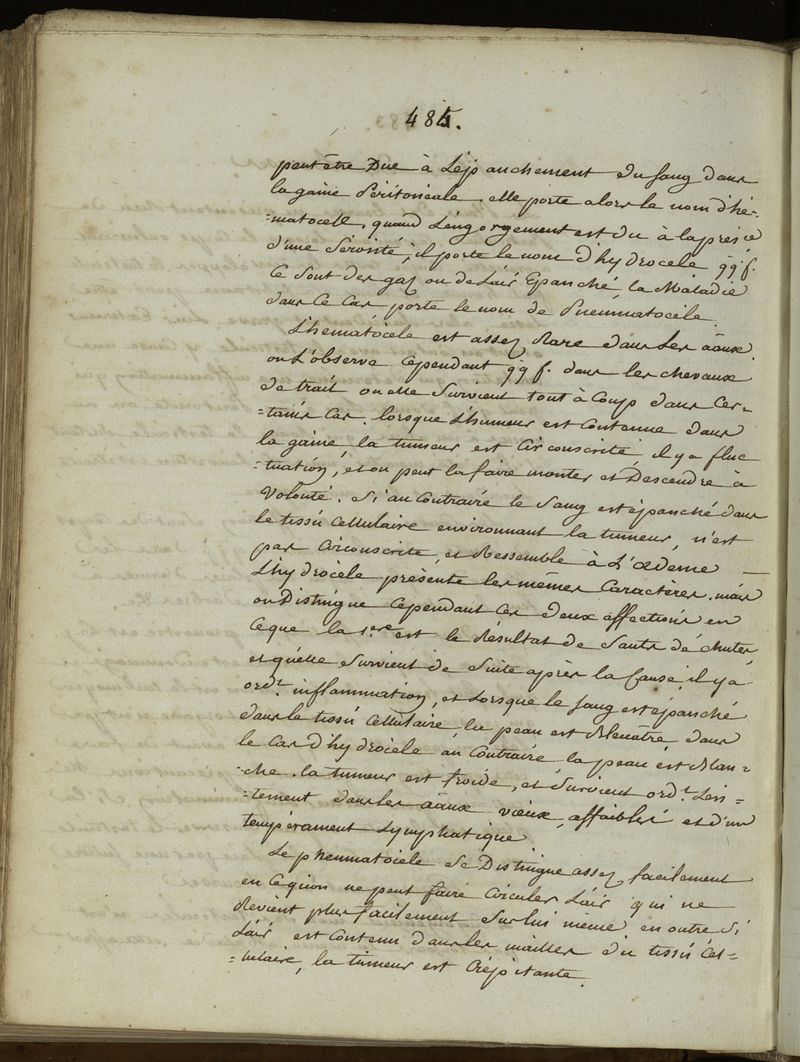 484.
peut être Due à L'épanchement du sang dans
la gaine Péritonéale. elle porte alors le nom d'hé-
=matocelle. quand L'engorgement est du à la présce
d'une Sérosité, il porte le nom d'hydrocele. qq f.
Ce sont des gaz ou de L'air Epanché la Maladie
dans Ce Cas porte le nom de Pneumatocele.
L'hématocele est assez Rare dans Les aäux.
on L'observe Cependant qq f. dans les chevaux
de trait ou elle Survient tout à Coup dans Cer-
=tains Cas. lorsque L'humeur est Contenue dans
la gaine, la tumeur est Circonscrite il y a fluc
=tuation, et on peut la faire monter et Descendre à
Volonté. Si au Contraire le Sang est épanché dans
le tissu Cellulaire environnant la tumeur, n'est
pas Circonscrite, et Ressemble à L'œdeme —
L'hydrocele présente les memes Caractères. mais
on Distingue Cependant Ces deux affections en
Ceque la 1.ere est le Résultat de Sauts de chutes,
et qu'elle Survient de Suite après la Cause, il y a
ord.t inflammation, et Lorsque le Sang est épanché
dans le tissu Cellulaire, la peau est Bleuâtre dans
le Cas d'hydrocele au Contraire la peau est Blan-
=che. la tumeur est froide, et Survient ord.t Len=
=tement dans les aäux vieux, affaiblis et d'un
tempérament Lymphatique.
Le pneumatocele Se Distingue assez facilement
en Ce qu'on ne peut faire Circuler L'air qui ne
Revient plus facilement Sur lui même, en outre Si
L'air est Contenu dans les mailles du tissu Cel=
=lulaire, la tumeur est Crépitante.